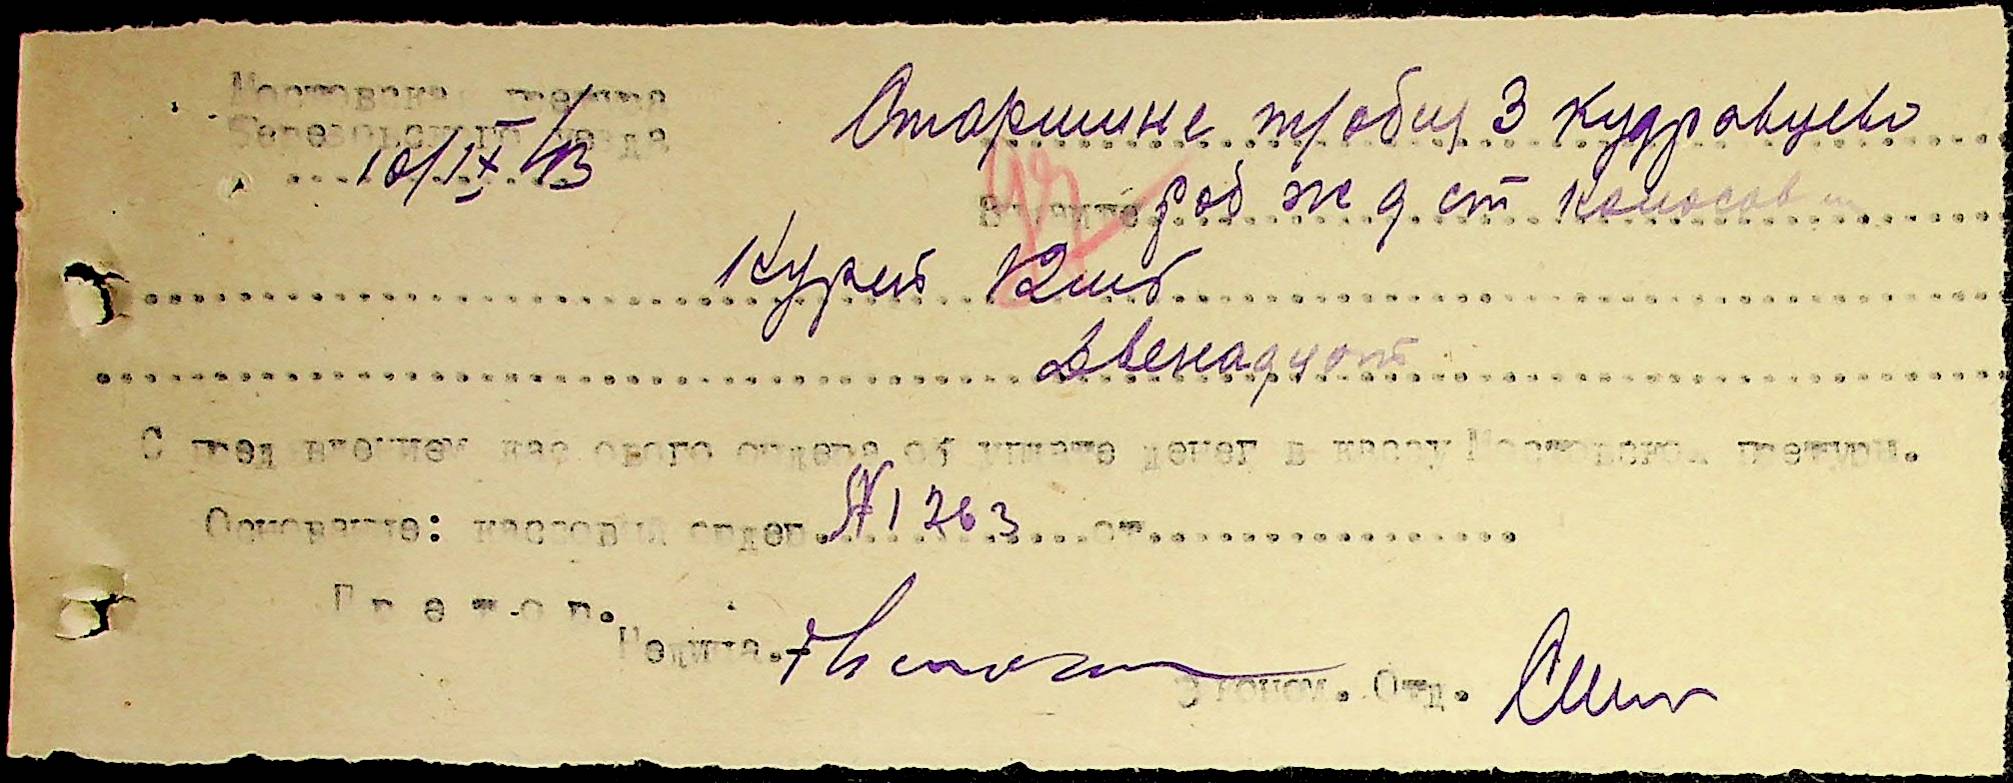 Мостовская претура
Березовского уезда
10/IX 43
Старшине трудобщ 3 Кудрявцево
Выдайте раб ж д ст Колосовки
Курей 12 шт
Двенадцат
С пред'явлением кассового ордера об уплате денег в кассу Мостовской претуры.
Основание: кассовый ордер № 1263 от
Претор.
Эконом. Отд.